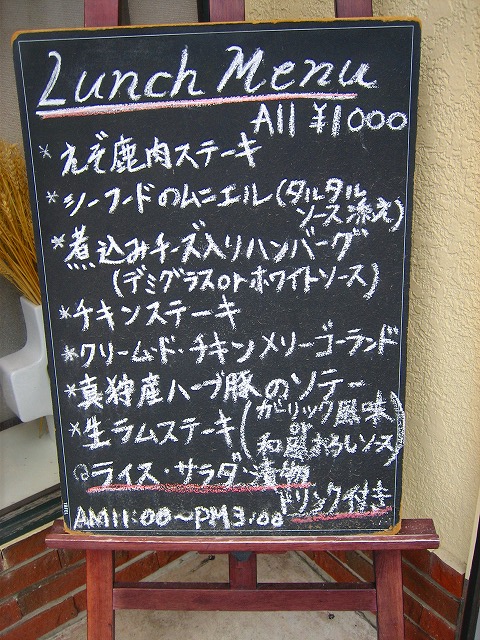 Lunch Menu
All ¥1000
*えぞ鹿肉ステーキ
*シーフードのムニエル(タルタル
ソース添え)
*煮込みチーズ入りハンバーグ
(デミグラスorホワイトソース)
*チキンステーキ
*クリームド・チキンメリーゴーランド
*真狩産ハーブ豚のソテー
*生ラムステーキ(ガーリック風味
和風おろしソース)
◎ライス・サラダ・漬物
ドリンク付き
AM11:00~PM3:00